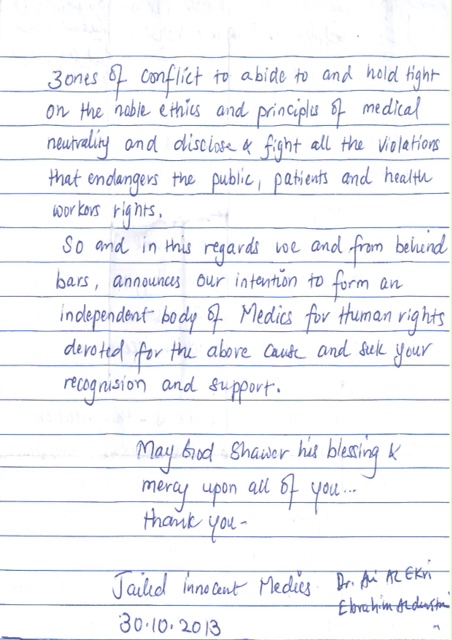 zones of conflict to abide to and hold tight
on the noble ethics and principles of medical
neutrality and disclose & fight all the violations
that endangers the public, patients and health
workers rights.
So and in this regards we and from behind
bars, announces our intention to form an
independent body of Medics for Human rights
devoted for the above cause and seek your
recognision and support.
May God Shawer his blessing &
mercy upon all of you...
thank you-
Jailed innocent Medics
Dr. Ali AL EKri
Ebrahim
30.10.2013